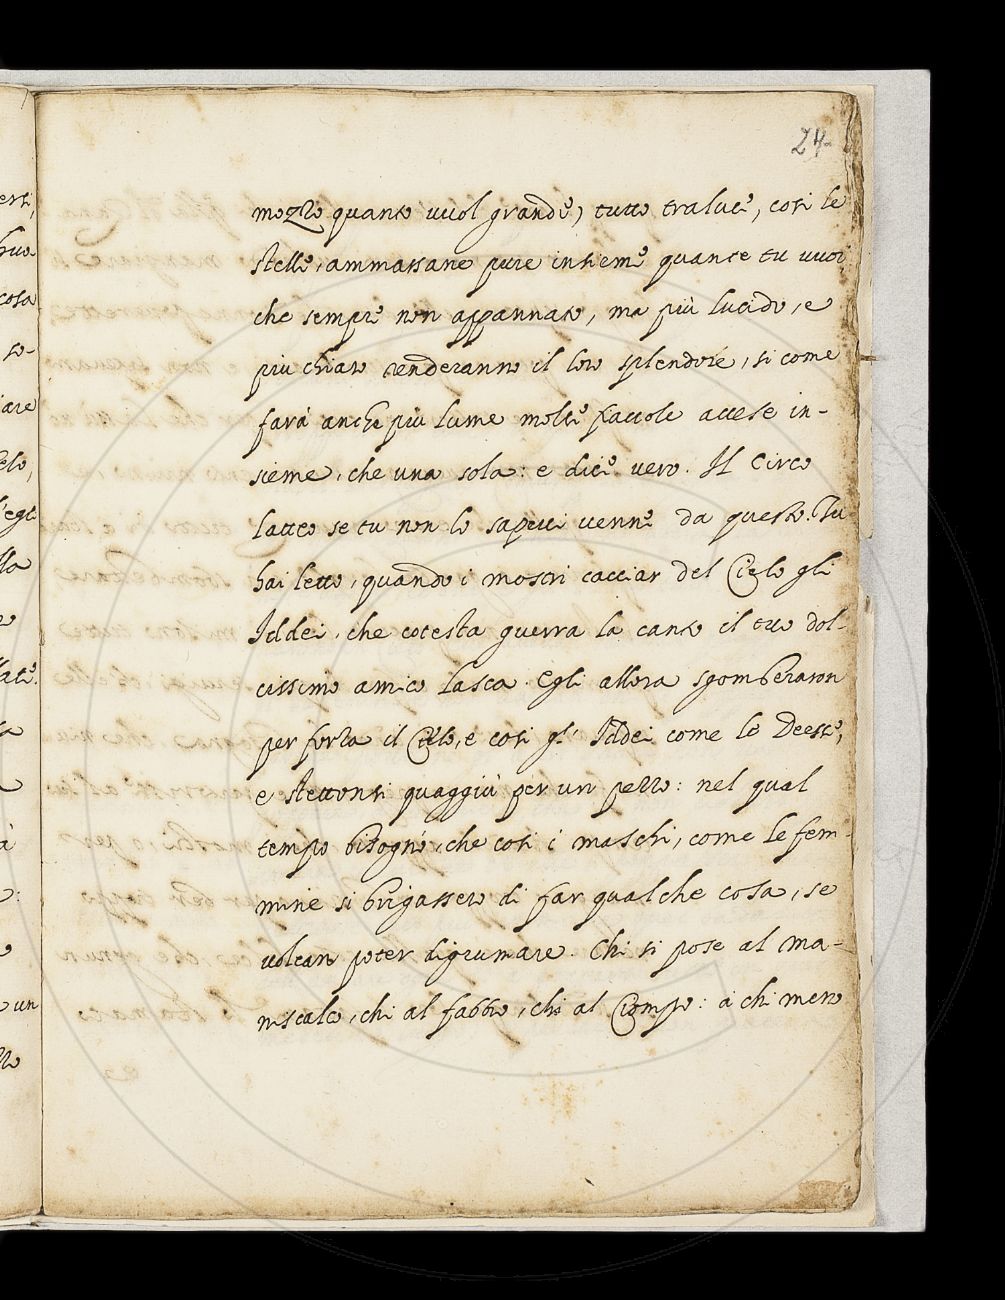 24
mozzo quanto vuol grande) tutto traluce, cosi le
stelle, ammassane pure insieme quante tu vuoi
che sempre non appannato, ma più lucido, e
piu chiaro renderanno il loro splendore, si come
farà anche più lume molte fiaccole accese in-
sieme, che una sola: e dice vero. Il Circo
latteo se tu non lo sapevi venne da questo. Tu
hai letto, quando i mostri cacciar del Cielo gli
Iddei, che cotesta guerra la canto il tuo dol-
cissimo amico Lasca. Egli allora sgomberaron
per forza il Cielo, e cosi gl' Iddei come le Deesse,
e stettonsi quaggiù per un pezzo: nel qual
tempo bisognò, che cosi i maschi, come le fem-
mine si brigassero di far qualche cosa, se
volean poter digrumare. Chi si pose al ma-
niscalco, chi al fabbro, chi al Ciompo: a chi meno